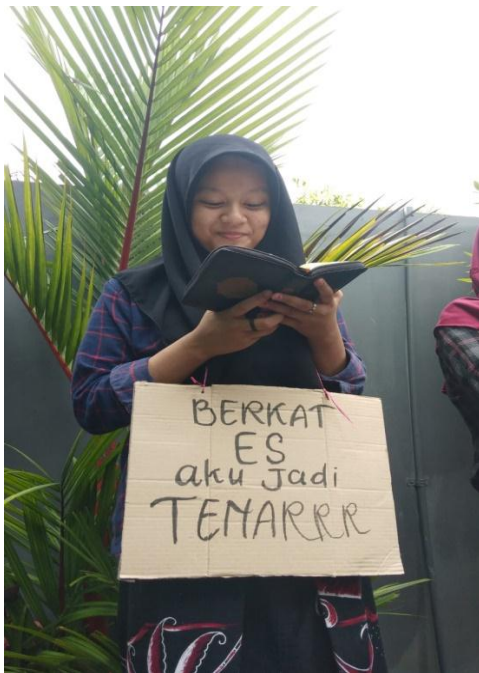 BERKAT
ES
aku Jadi
TEMARRR